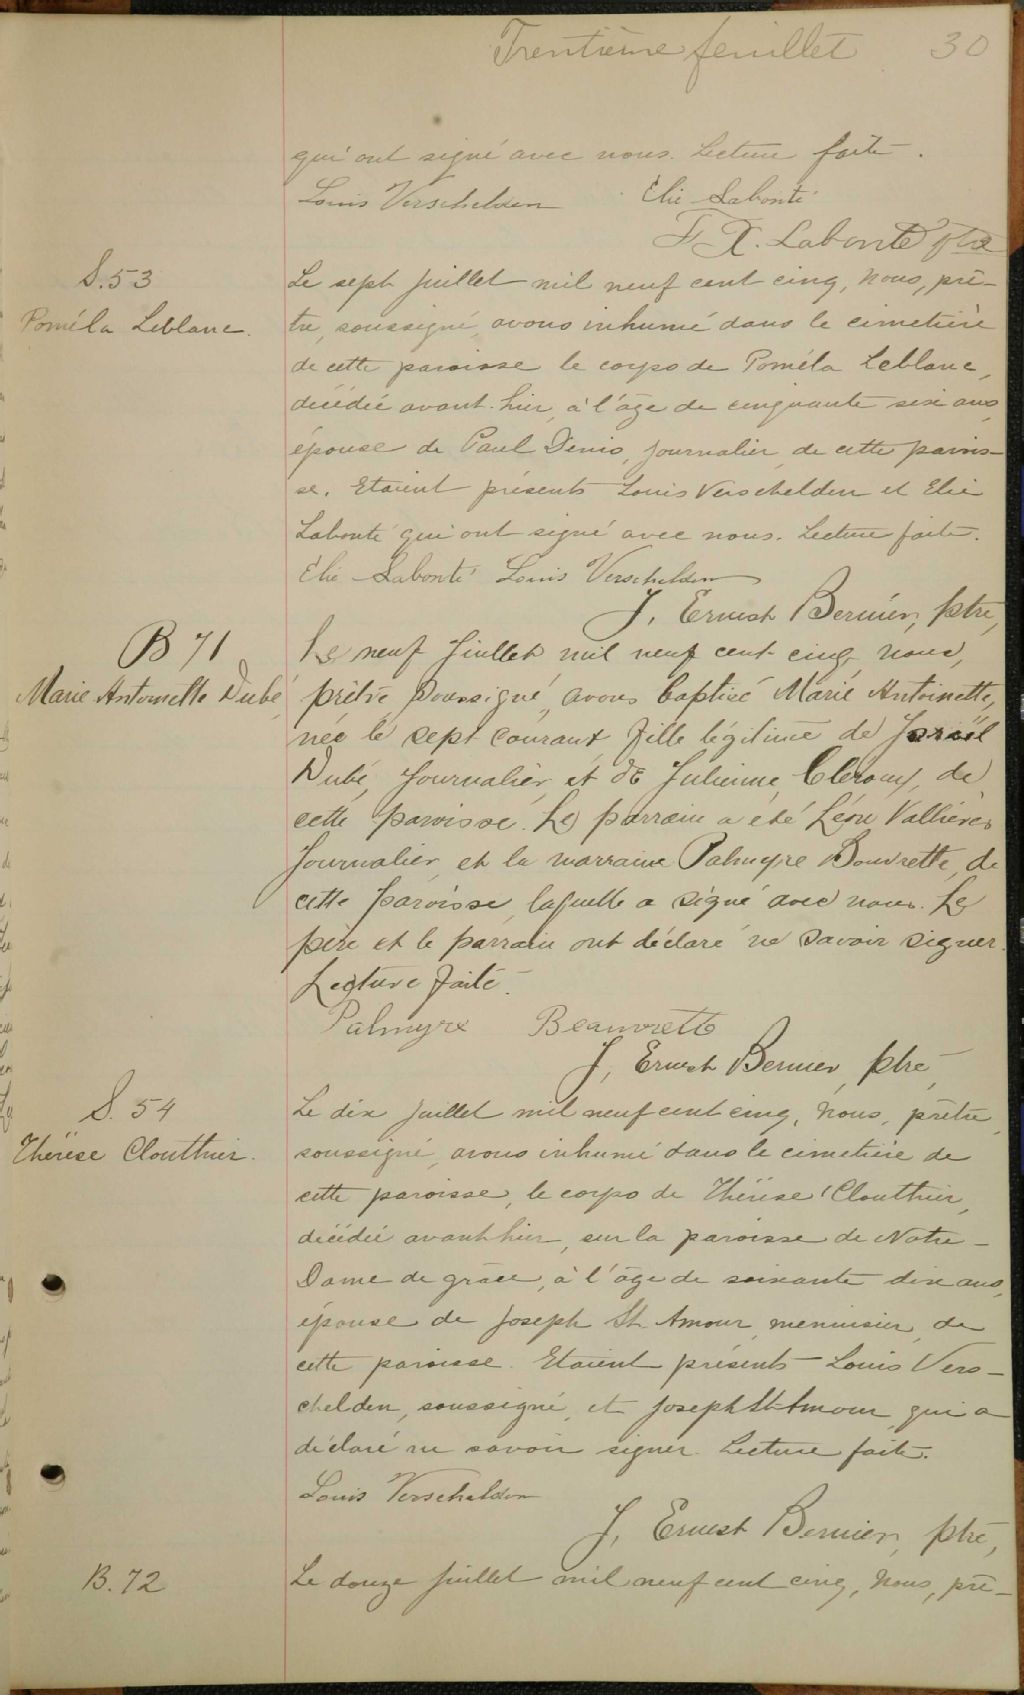 Trentième feuillet 30
qui ont signé avec nous. Lecture faite.
Louis Verschelden Élie Labonté
F. X. Labonté ptre
S. 53
Poméla Leblanc.
Le sept juillet mil neuf cent cinq, Nous, prê-
tre, soussigné, avons inhumé dans le cimetière
de cette paroisse le corps de Poméla Leblanc,
décédée avant-hier, à l'âge de cinquante six ans,
épouse de Paul Denis, journalier, de cette parois-
se. Etaient présents Louis Verschelden et Elie
Labonté qui ont signé avec nous. Lecture faite.
Élie Labonté Louis Verschelden
J. Ernest Bernier, ptre,
B 71
Marie Antoinette Dubé,
Le neuf Juillet mil neuf cent cinq, nous,
prêtre soussigné, avons baptisé Marie Antoinette,
née le sept courant, fille légitime de Israël
Dubé, Journalier, et de Julienne Cleroux, de
cette paroisse. Le parrain a été Léon Vallières
Journalier, et la marraine Palmyre Bouvrette, de
cette paroisse, laquelle a signé avec nous. Le
père et le parrain ont déclaré ne savoir signer.
Lecture faite.
Palmyre Beauvrette
J. Ernest Bernier, ptre,
S. 54
Thérèse Clouthier.
Le dix juillet mil neuf cent cinq, Nous, prêtre,
soussigné, avons inhumé dans le cimetière de
cette paroisse, le corps de Thérèse Clouthier,
décédée avant hier, sur la paroisse de Notre-
Dame de grâce, à l'âge de soixante dix ans,
épouse de Joseph St. Amour, menuisier, de
cette paroisse. Etaient présents Louis Vers-
chelden, soussigné, et Joseph St-Amour, qui a
déclaré ne savoir signer. Lecture faite.
Louis Verschelden
J. Ernest Bernier, ptre,
B. 72
Le douze juillet mil neuf cent cinq, Nous, prê-